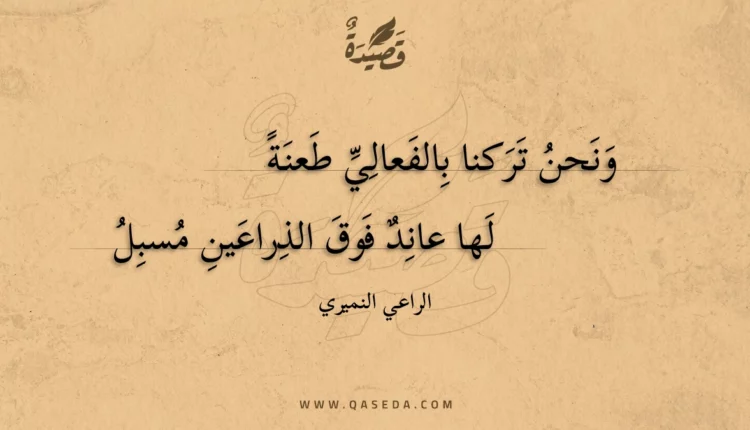 قَصِيْدَةٌ
وَنَحنُ تَرَكنا بِالفَعالِيِّ طَعنَةً
لَها عانِدٌ فَوقَ الذِراعَينِ مُسبِلُ
الراعي النميري
WWW.QASEDA.COM